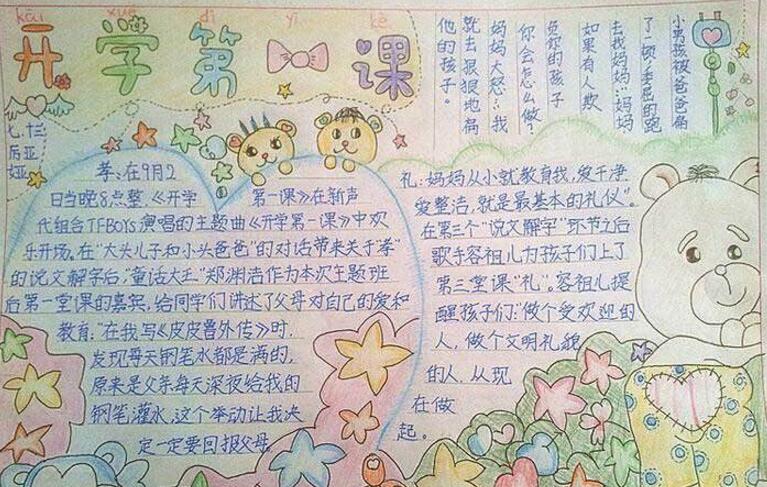 kāi xué dì yī kè
开学第一课
七.十三
后亚
娅
小男孩被爸爸扁
了一顿,委屈的跑
去找妈妈:“妈妈
如果有人欺
负你的孩子
你会怎么做?
妈妈大怒:“我
就去狠狠地扁
他的孩子。
孝:在9月2
日当晚8点整,《开学
第一课》在新声
代组合TFBOYS演唱的主题曲《开学第一课》中欢
乐开场,在“大头儿子和小头爸爸”的对话带来关于“孝”
的说文解字后,“童话大王”郑渊洁作为本次主题班
后第一堂课的嘉宾,给同学们讲述了父母对自己的爱和
教育:“在我写《皮皮鲁外传》时,
发现每天钢笔水都是满的,
原来是父亲每天深夜给我的
钢笔灌水,这个举动让我决
定一定要回报父母。
礼:妈妈从小就教育我,爱干净
爱整洁,就是最基本的礼仪”。
在第三个“说文解字”环节之后
歌手容祖儿为孩子们上了
第三堂课“礼”。容祖儿提
醒孩子们:“做个受欢迎的
人,做个文明礼貌
的人,从现
在做
起。